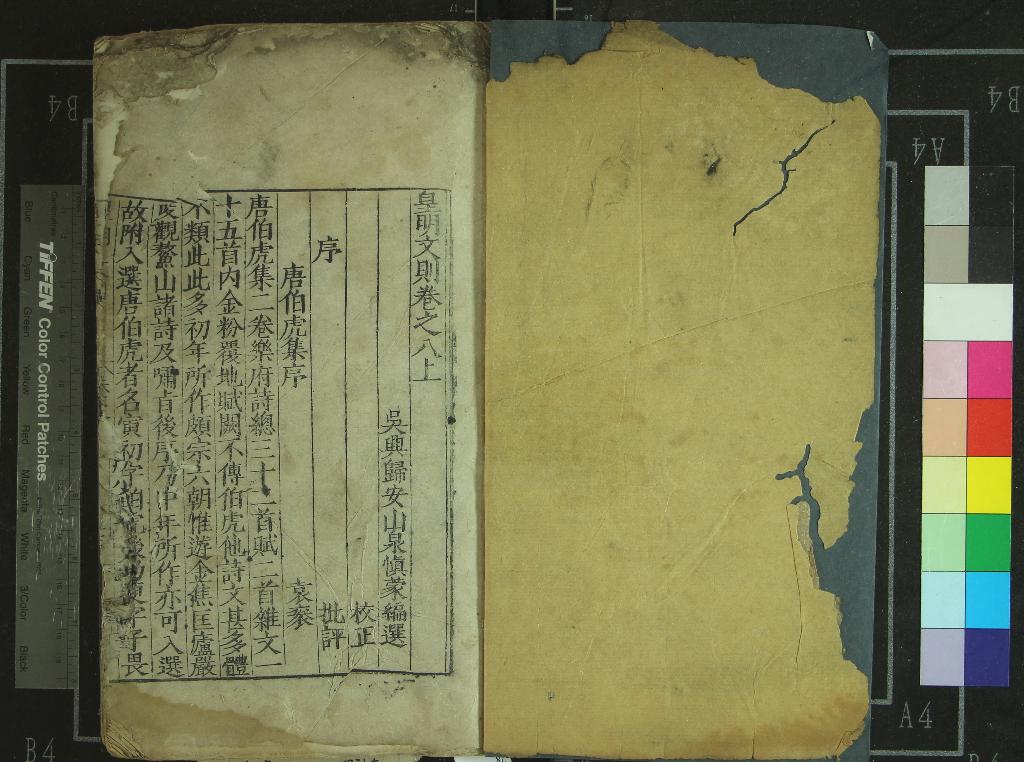 皇明文則卷之八上
吳興歸安山泉慎蒙編選
校正
批評
序
唐伯虎集序 袁袠
唐伯虎集二卷樂府詩總三十二首賦二首雜文一
十五首內金粉福地賦闕不傳伯虎他詩文甚多體
不類此此多初年所作頗宗六朝惟遊金焦匡廬嚴
觀鰲山諸詩及嘯旨後序乃中年所作亦可入選
故附入選唐伯虎者名寅初字伯虎
子畏
TIFFEN Color Control Patches
Blue Cyan Green Yellow Red Magenta White 3/Color Black
B4
B4
A4
A4
B4